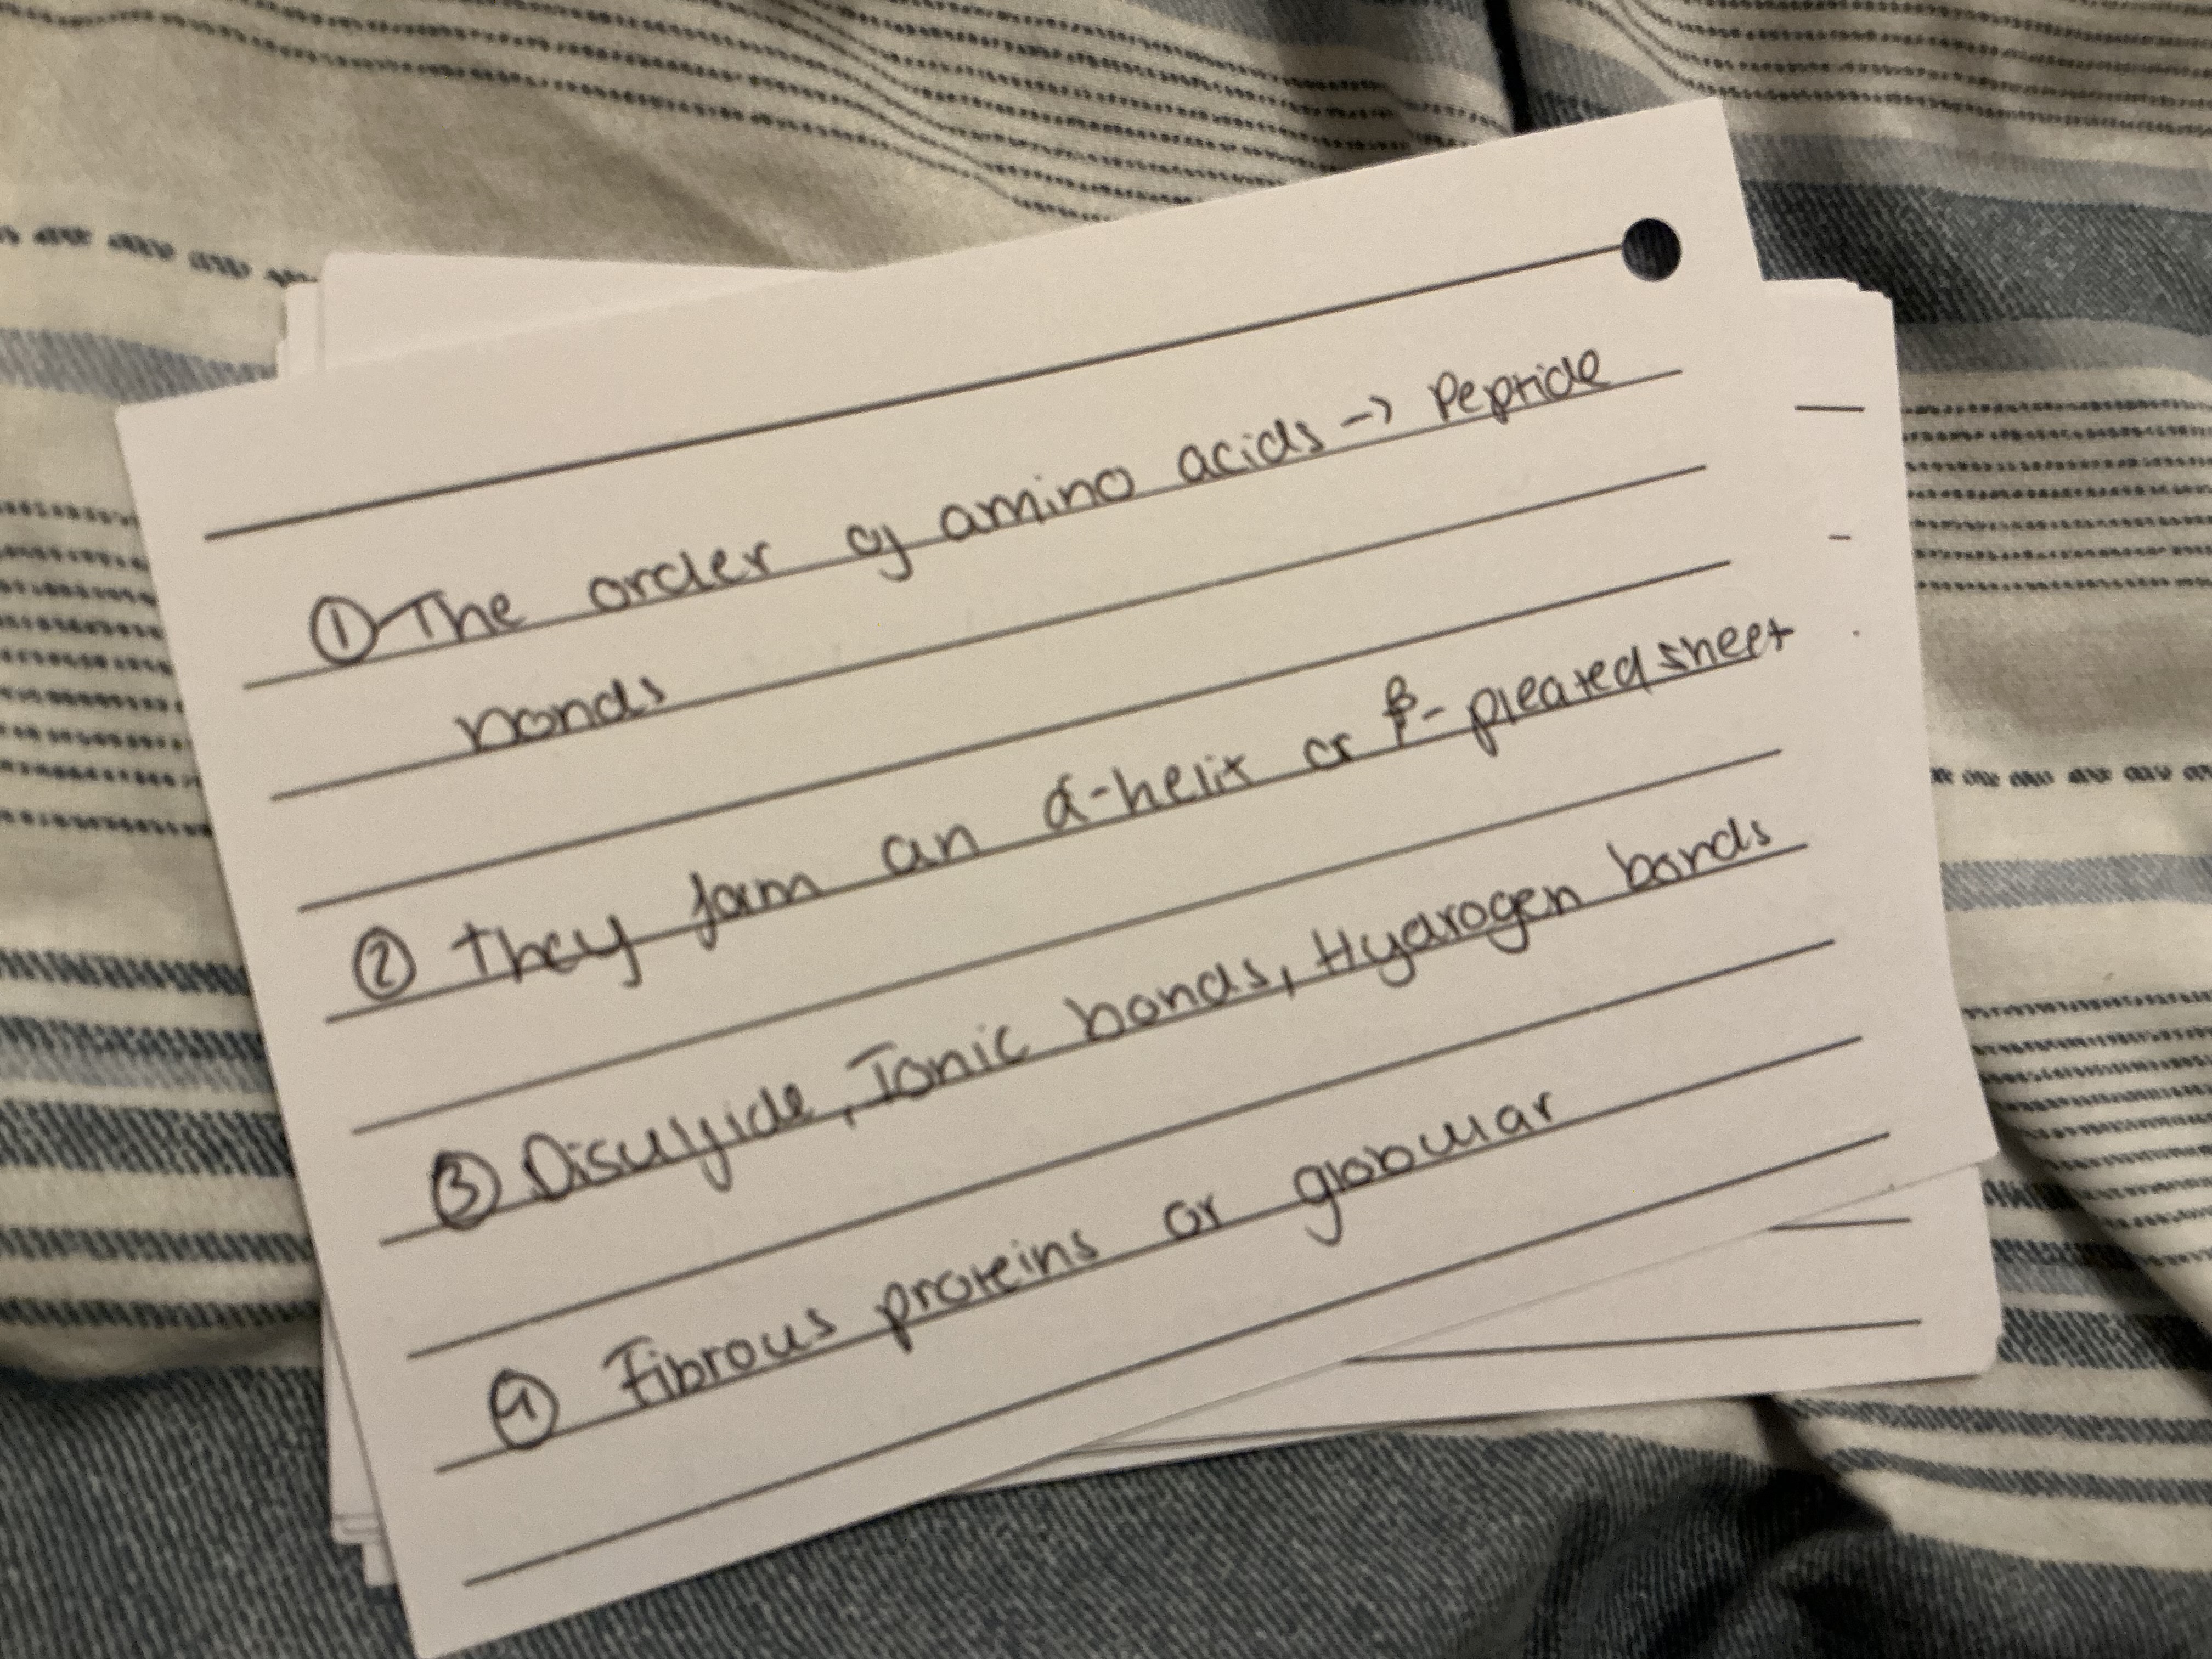 ① The order of amino acids -> Peptide
bonds
② they form an α-helix or β-pleated sheet
③ Disulfide, Ionic bonds, Hydrogen bonds
④ Fibrous proteins or globular